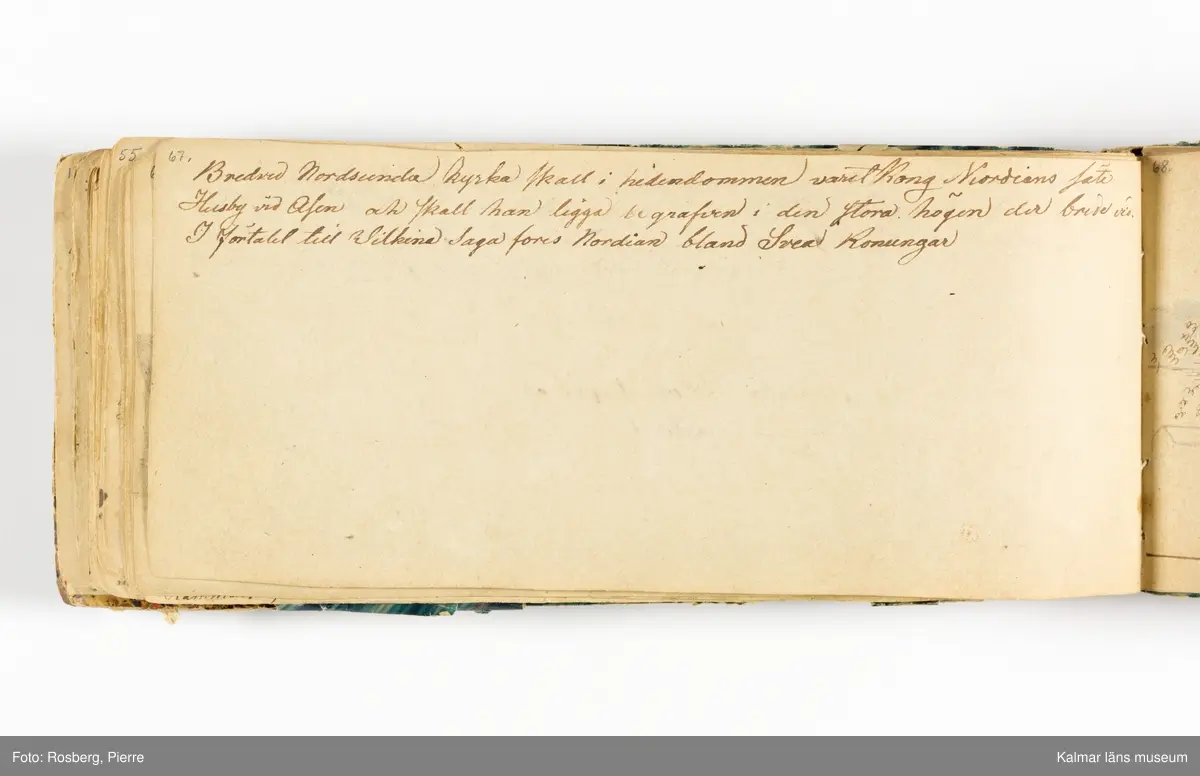 55
67.
68.
Bredvid Nordsunda kyrka skall i hedendommen varit Kong Niordians säte
Husby vid Åsen at skall han ligga begrafven i den stora högen der bredevid.
I förtalet till Wilkina Saga föres Nordian bland Svea Konungar
Foto: Rosberg, Pierre
Kalmar läns museum